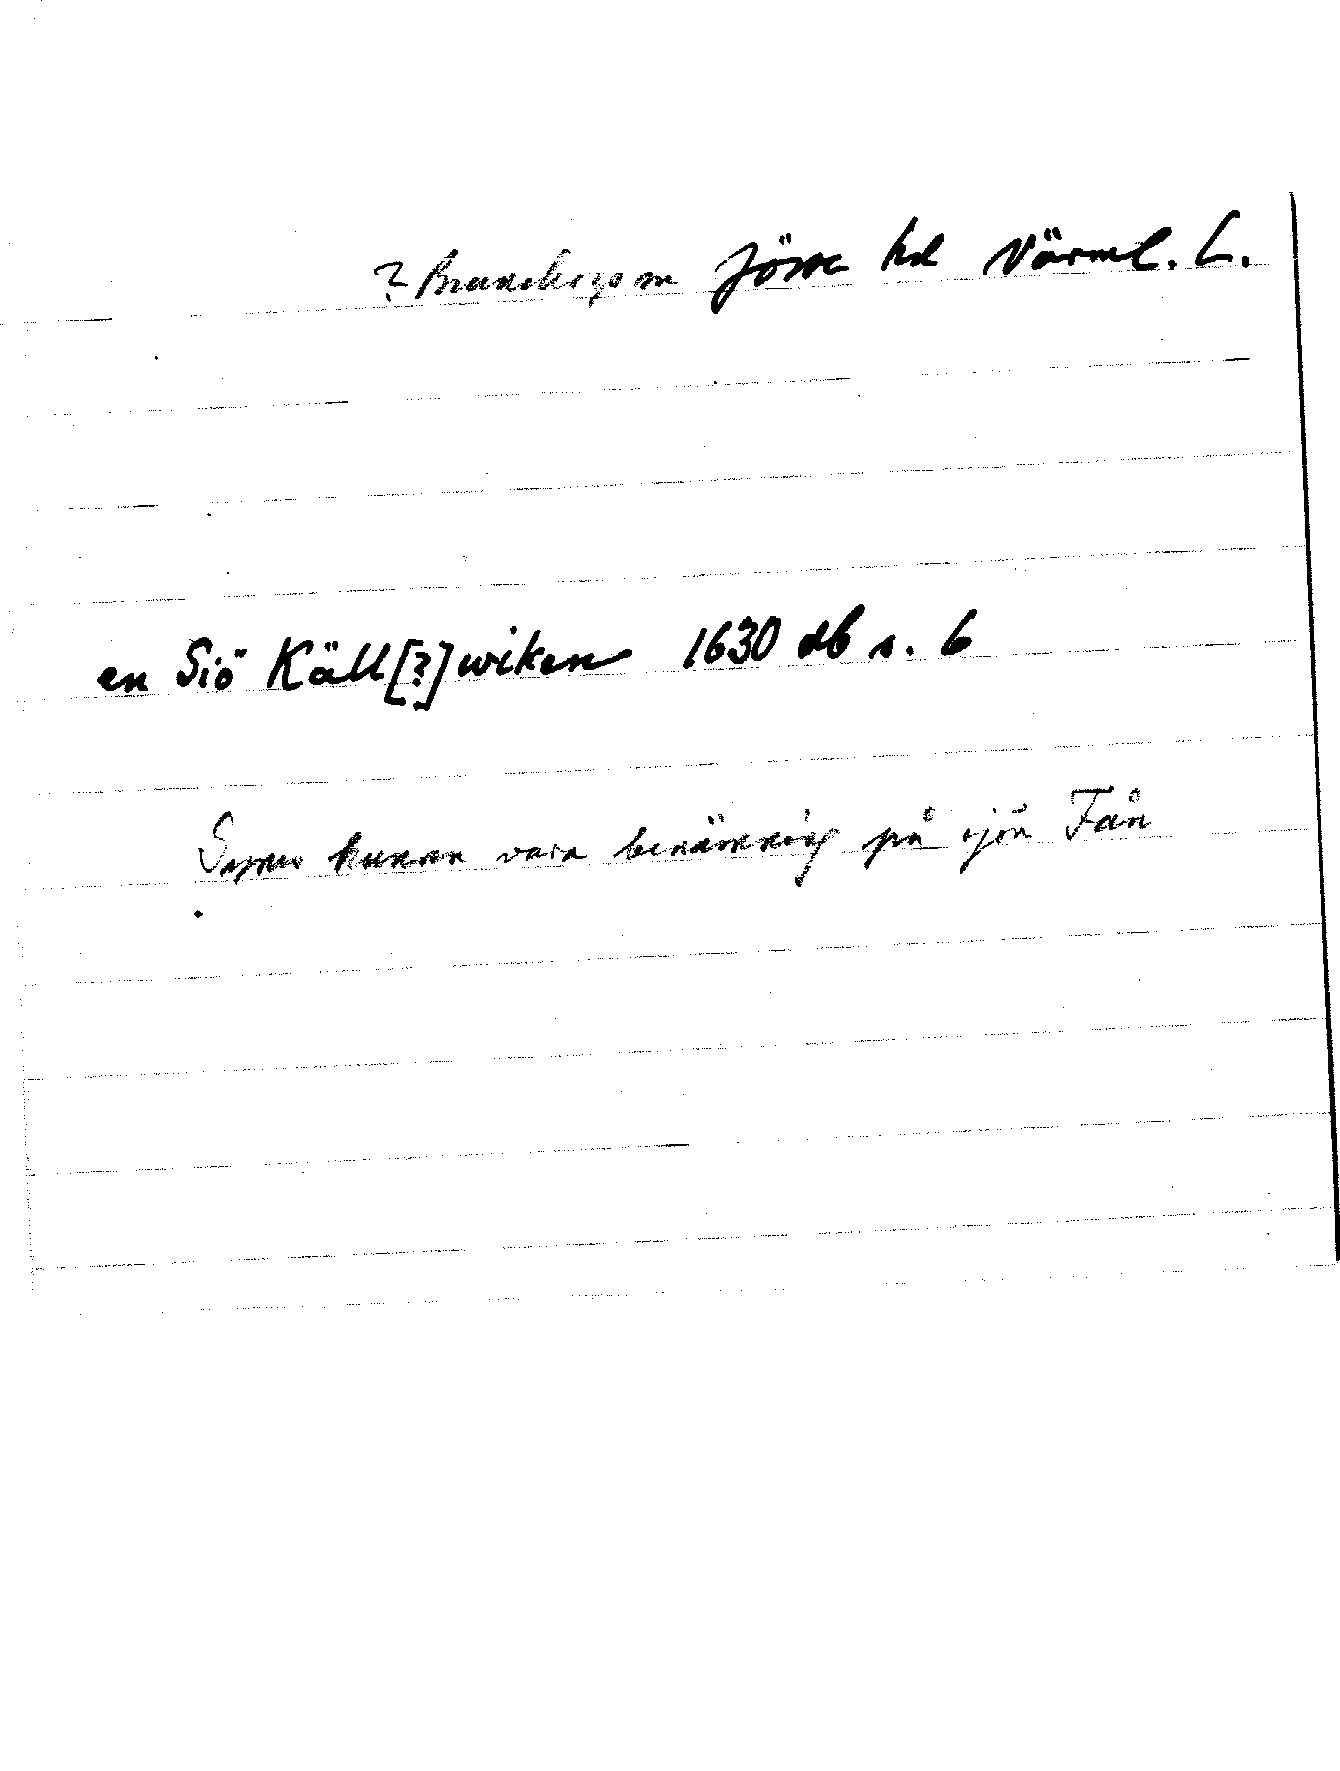 ? Brunskogs sn Jösse hd Värml. L.
en Siö Käll[?]wiken 1630 db s. 6
Synes kunna vara benämning på sjön Fån